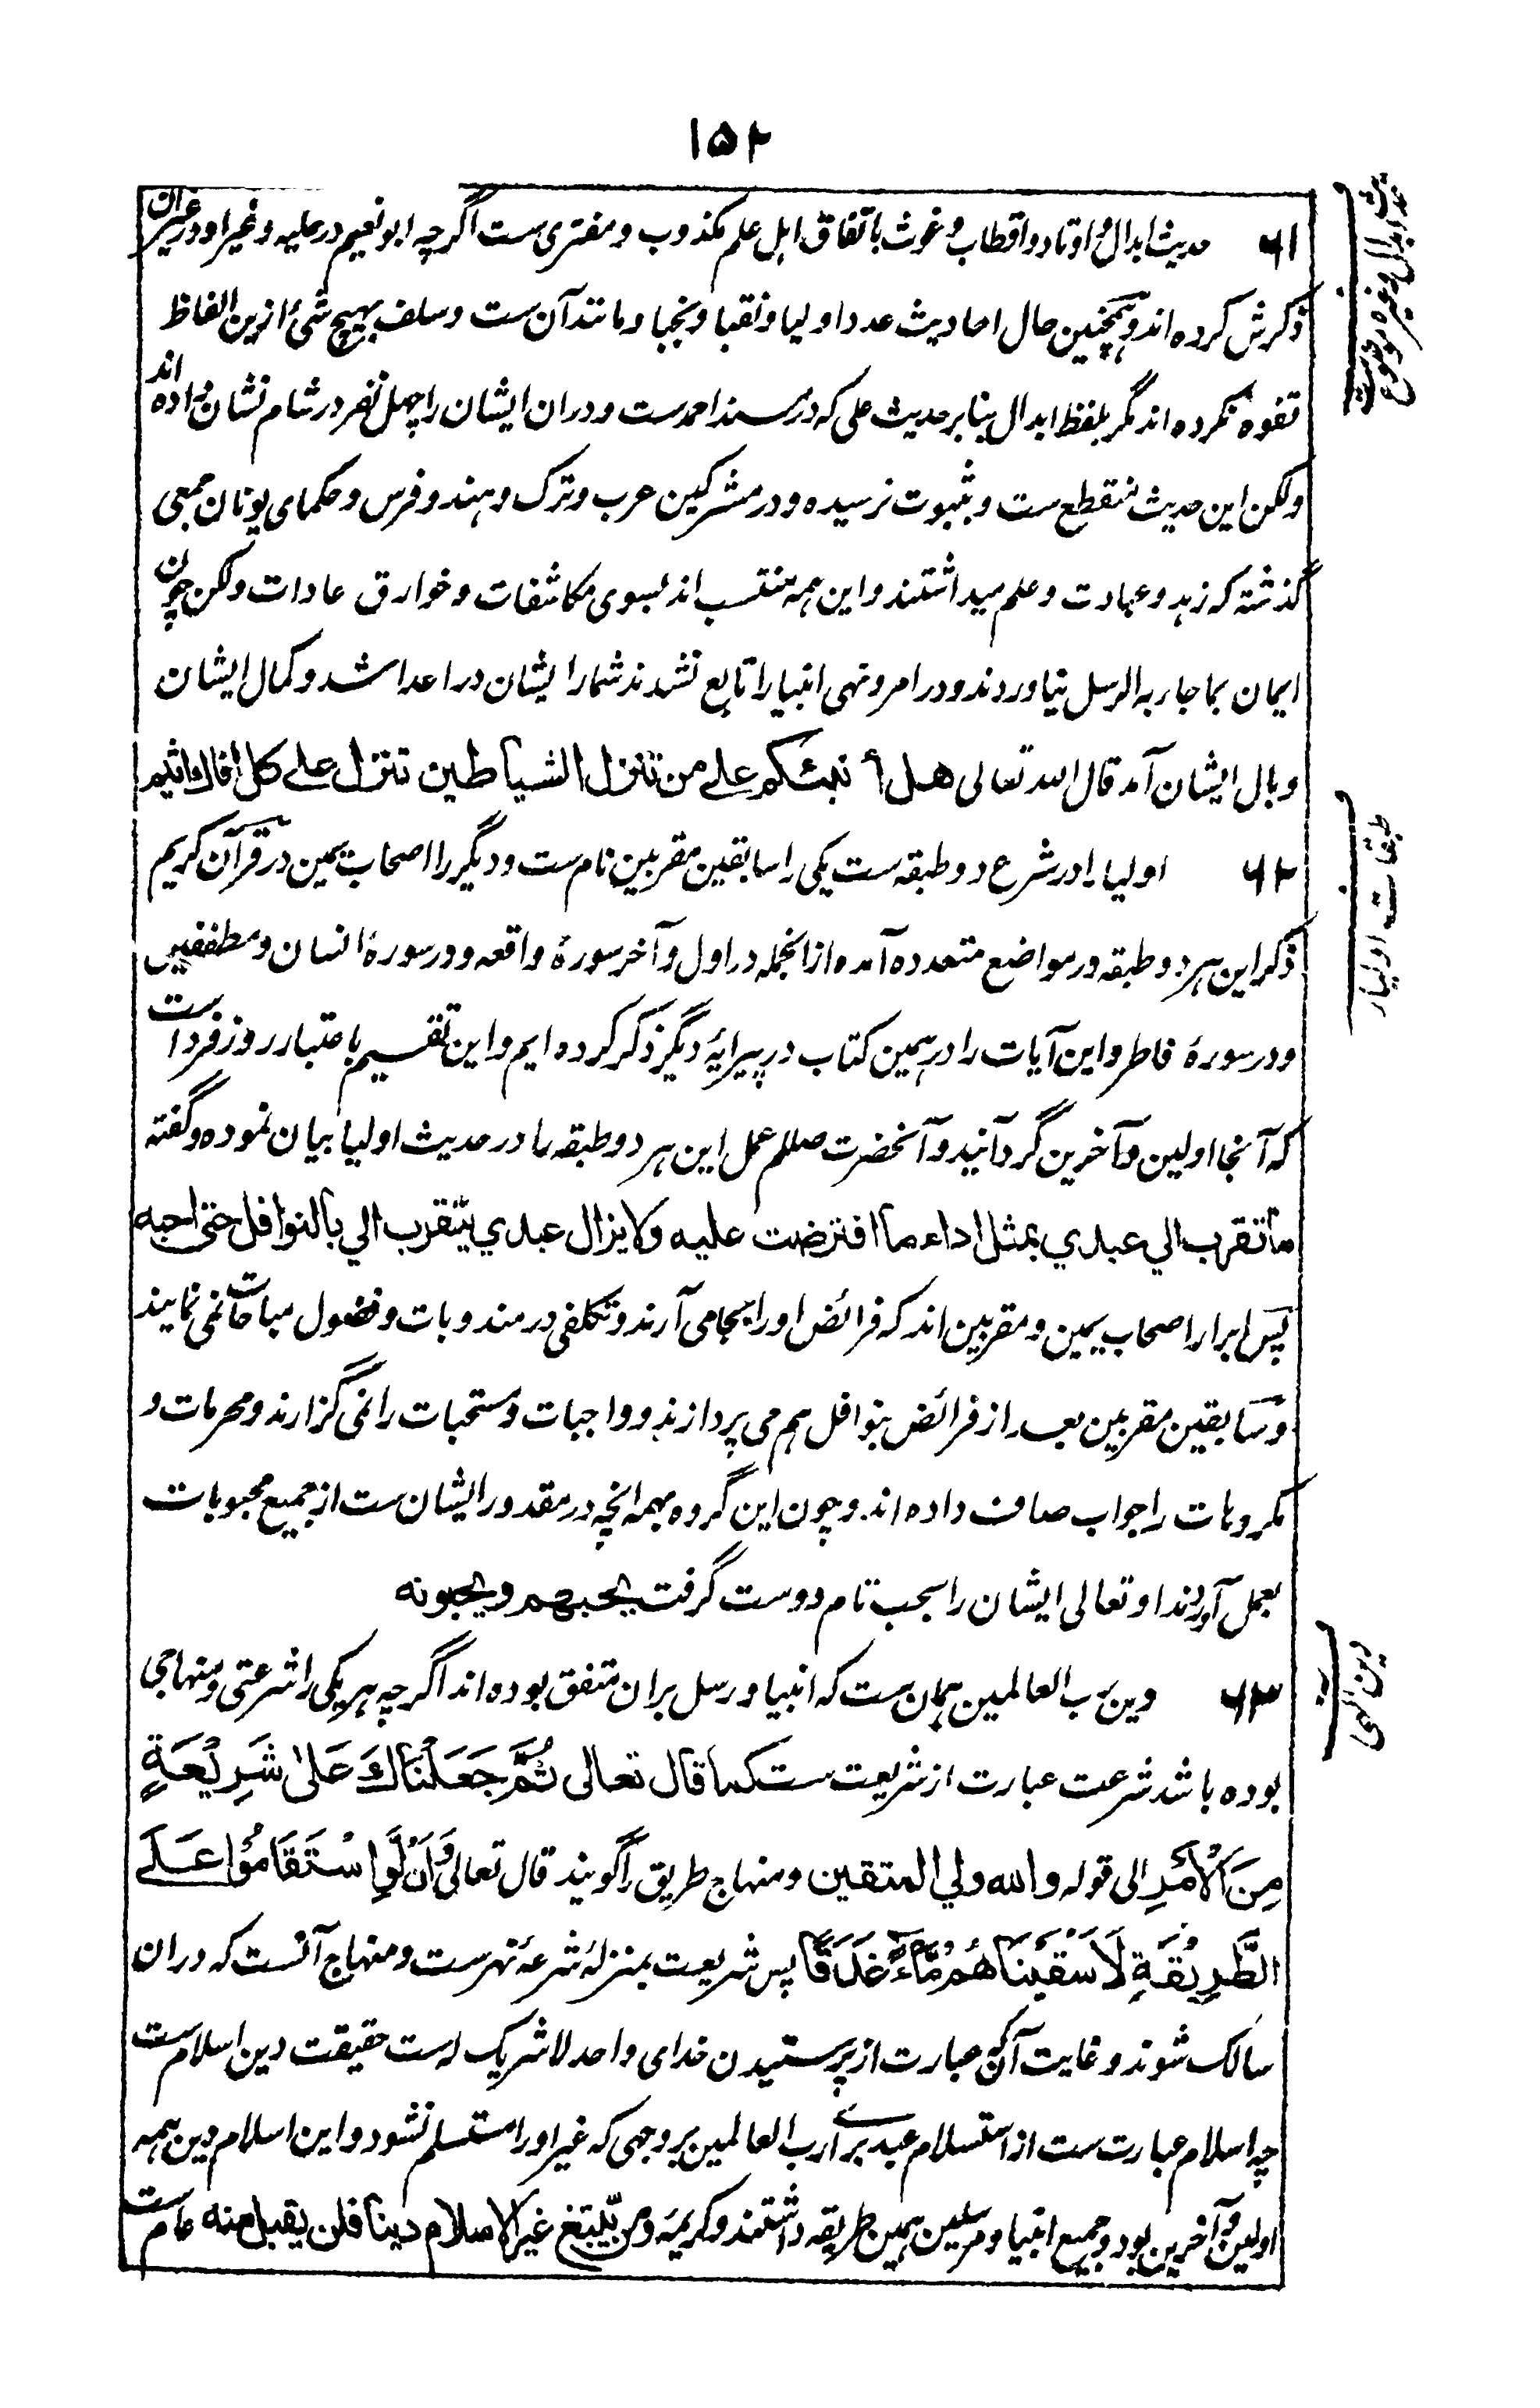 ۱۵۲
۶۱ حدیث ابدال و اوتاد و اقطاب و غوث باتفاق اہل علم مکذوب و مفتری ست اگرچہ ابو نعیم در حلیہ و غیر او در غیر آن
ذکرش کردہ اند و ہمچنین حال احادیث عدد اولیا و نقبا و نجبا و مانند آن ست و سلف بہیچ شیٔ ازین الفاظ
تفوہ نکردہ اند مگر بلفظ ابدال بنابر حدیث علی کہ در مسند احمد ست و دران ایشان را چہل نفر در شام نشان دادہ اند
ولکن این حدیث منقطع ست و بثبوت نرسیدہ و در مشرکین عرب و ترک و ہند و فرس و حکمای یونان جمعی
گذشتہ کہ زہد و عبادت و علم میداشتند و این ہمہ منتسب اند بسوی مکاشفات و خوارق عادات ولکن چون
ایمان بما جاء بہ الرسل نیاوردند و در امر و نہی انبیا را تابع نشدند شمار ایشان در اعدا شد و کمال ایشان
وبال ایشان آمد قال اللہ تعالی هل أنبئكم على من تنزل الشياطين تنزل على كل افاك اثيم
۶۲ اولیا را در شرع دو طبقہ ست یکی را سابقین مقربین نام ست و دیگر را اصحاب یمین در قرآن کریم
ذکر این ہر دو طبقہ در مواضع متعددہ آمدہ ازانجملہ در اول و آخر سورۂ واقعہ و در سورۂ انسان و مطففین
و در سورۂ فاطر و این آیات را در ہمین کتاب در پیرایۂ دیگر ذکر کردہ ایم و این تقسیم باعتبار روز فردا ست
کہ آنجا اولین و آخرین گرد آیند و آنحضرت صلعم عمل این ہر دو طبقہ را در حدیث اولیا بیان نمودہ و گفتہ
ما تقرب الي عبدي بمثل اداء ما افترضت عليه ولا يزال عبدي يتقرب الي بالنوافل حتى احبه
پس ابرار اصحاب یمین و مقربین اند کہ فرائض او را بجا می آرند و تکلفی در مندوبات و فضول مباحات نمی نمایند
و سابقین مقربین بعد از فرائض بنوافل ہم می پردازند و واجبات و مستحبات را نمی گزارند و محرمات و
مکروہات را جواب صاف دادہ اند و چون این گروہ بہمہ انچہ در مقدور ایشان ست از جمیع محبوبات
بعمل آوردند او تعالی ایشان را بحب تام دوست گرفت يحبهم ويحبونه
۶۳ دین رب العالمین ہمان ست کہ انبیا و رسل بران متفق بودہ اند اگرچہ ہر یکی را شرعتی و منہاجی
بودہ باشد شرعت عبارت از شریعت ست كما قال تعالى ثُمَّ جَعَلْنَاكَ عَلَىٰ شَرِيْعَةٍ
مِنَ الْأَمْرِ الى قوله والله ولي المتقين و منہاج طریق را گویند قال تعالی وَأَنْ لَّوِ اسْتَقَامُوْا عَلَى
الطَّرِيْقَةِ لَأَسْقَيْنَاهُمْ مَّاءً غَدَقًا پس شریعت بمنزلۂ شرعۂ نہر ست و منہاج آنست کہ دران
سالک شوند و غایت آن کہ عبارت از پرستیدن خدای واحد لا شریک لہ ست حقیقت دین اسلام ست
چہ اسلام عبارت ست از استسلام عبد برای رب العالمین بر وجہی کہ غیر او را مستسلم نشود و این اسلام دین ہمہ
اولین و آخرین بود و جمیع انبیا و مرسلین ہمین طریقہ داشتند و کریمۂ ومن يبتغ غير الاسلام دينا فلن يقبل منه عام ست
ابدال وغیرہ موضوع
طبقات اولیاء
دین الہی